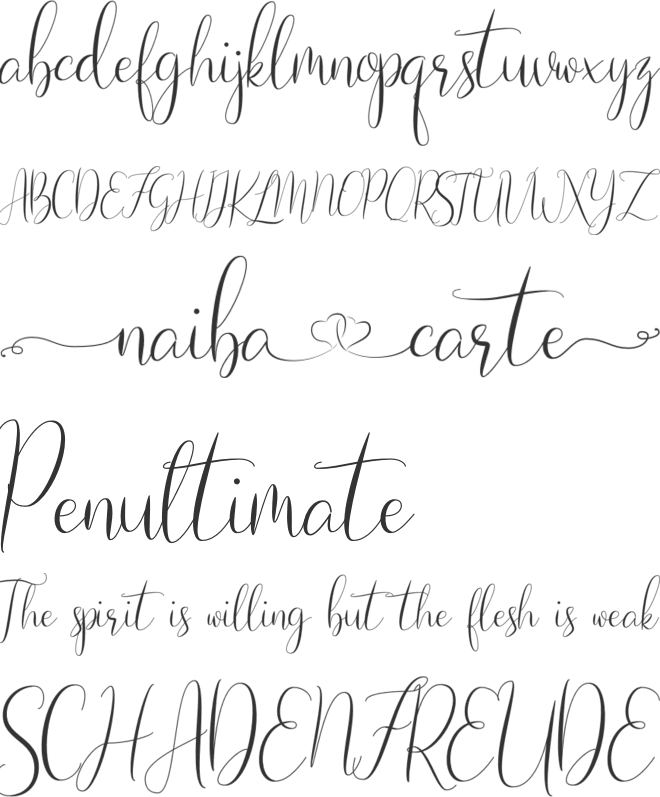 abcdefghijklmnopqrstuvwxyz
ABCDEFGHIJKLMNOPQRSTUVWXYZ
naiba carte
Penultimate
The spirit is willing but the flesh is weak
SCHADENFREUDE